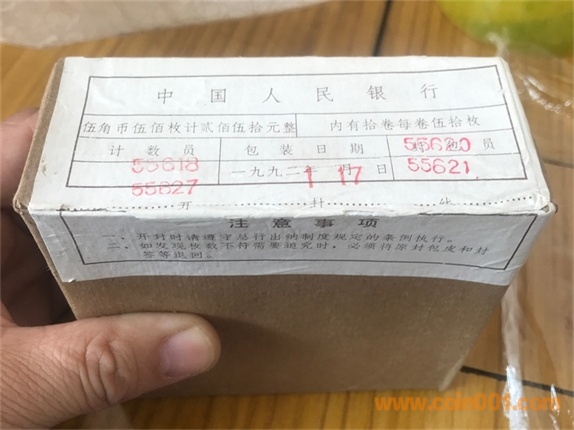 中国人民银行
伍角币伍佰枚计贰佰伍拾元整 内有拾卷每卷伍拾枚
计数员 包装日期 员
55618 一九九二年 1月17日 55620
55627 55621
开 封 处
注意事项
一、开封时请遵守总行出纳制度规定的条例执行。
二、如发现枚数不符需要追究时，必须将原封包皮和封
签等退回。
www.coin001.com